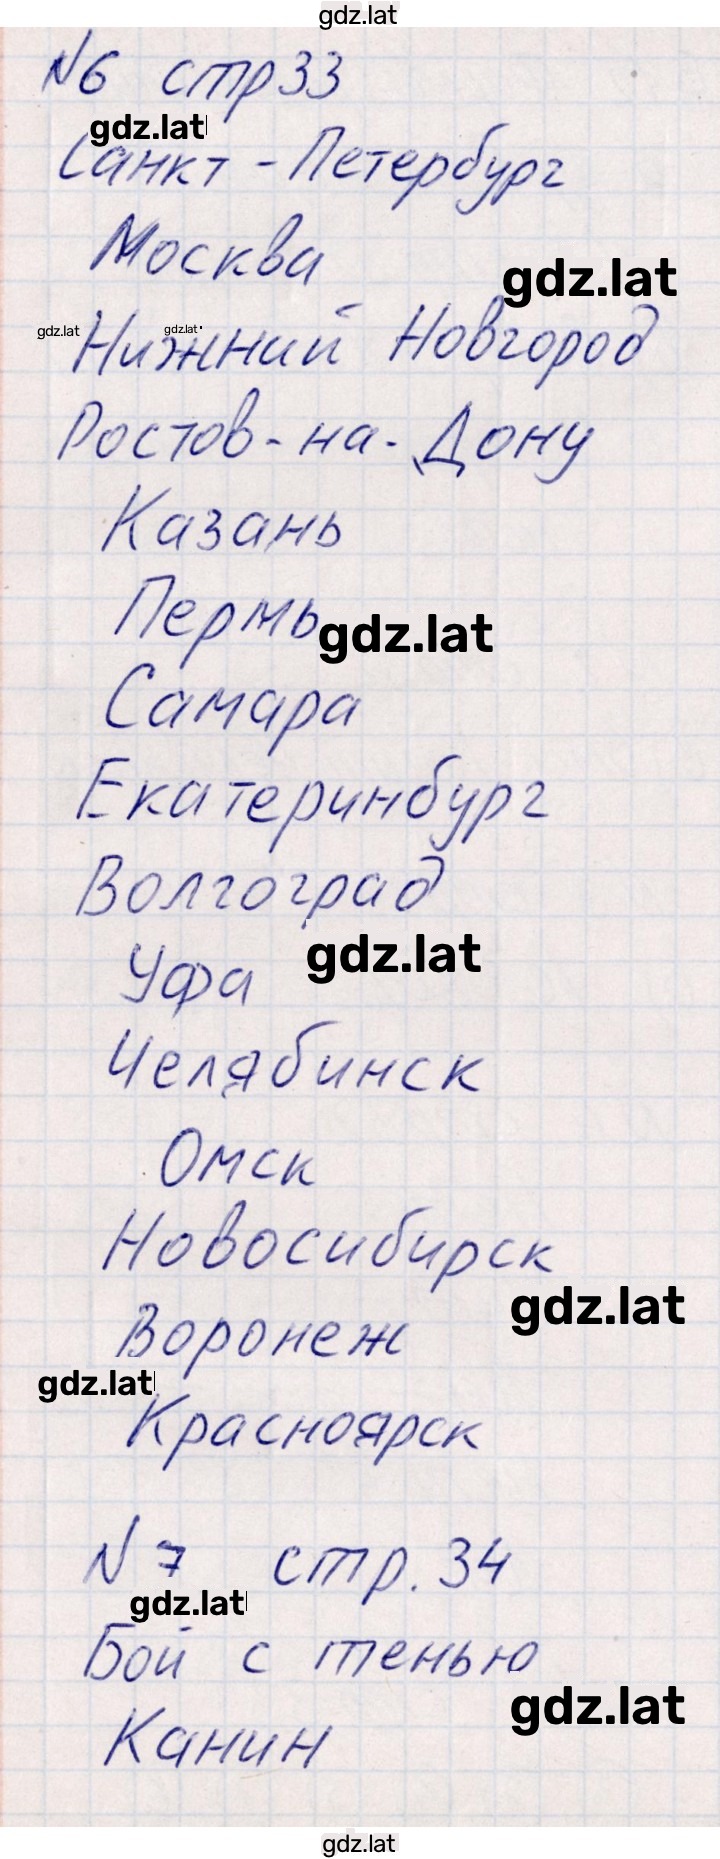 gdz.lat
№6 стр33
gdz.lat
Санкт-Петербург
Москва
gdz.lat
gdz.lat
gdz.lat
Нижний Новгород
Ростов-на-Дону
Казань
Пермь
gdz.lat
Самара
Екатеринбург
Волгоград
gdz.lat
Уфа
Челябинск
Омск
Новосибирск
gdz.lat
Воронеж
gdz.lat
Красноярск
№7 стр. 34
gdz.lat
Бой с тенью
gdz.lat
Канин
gdz.lat